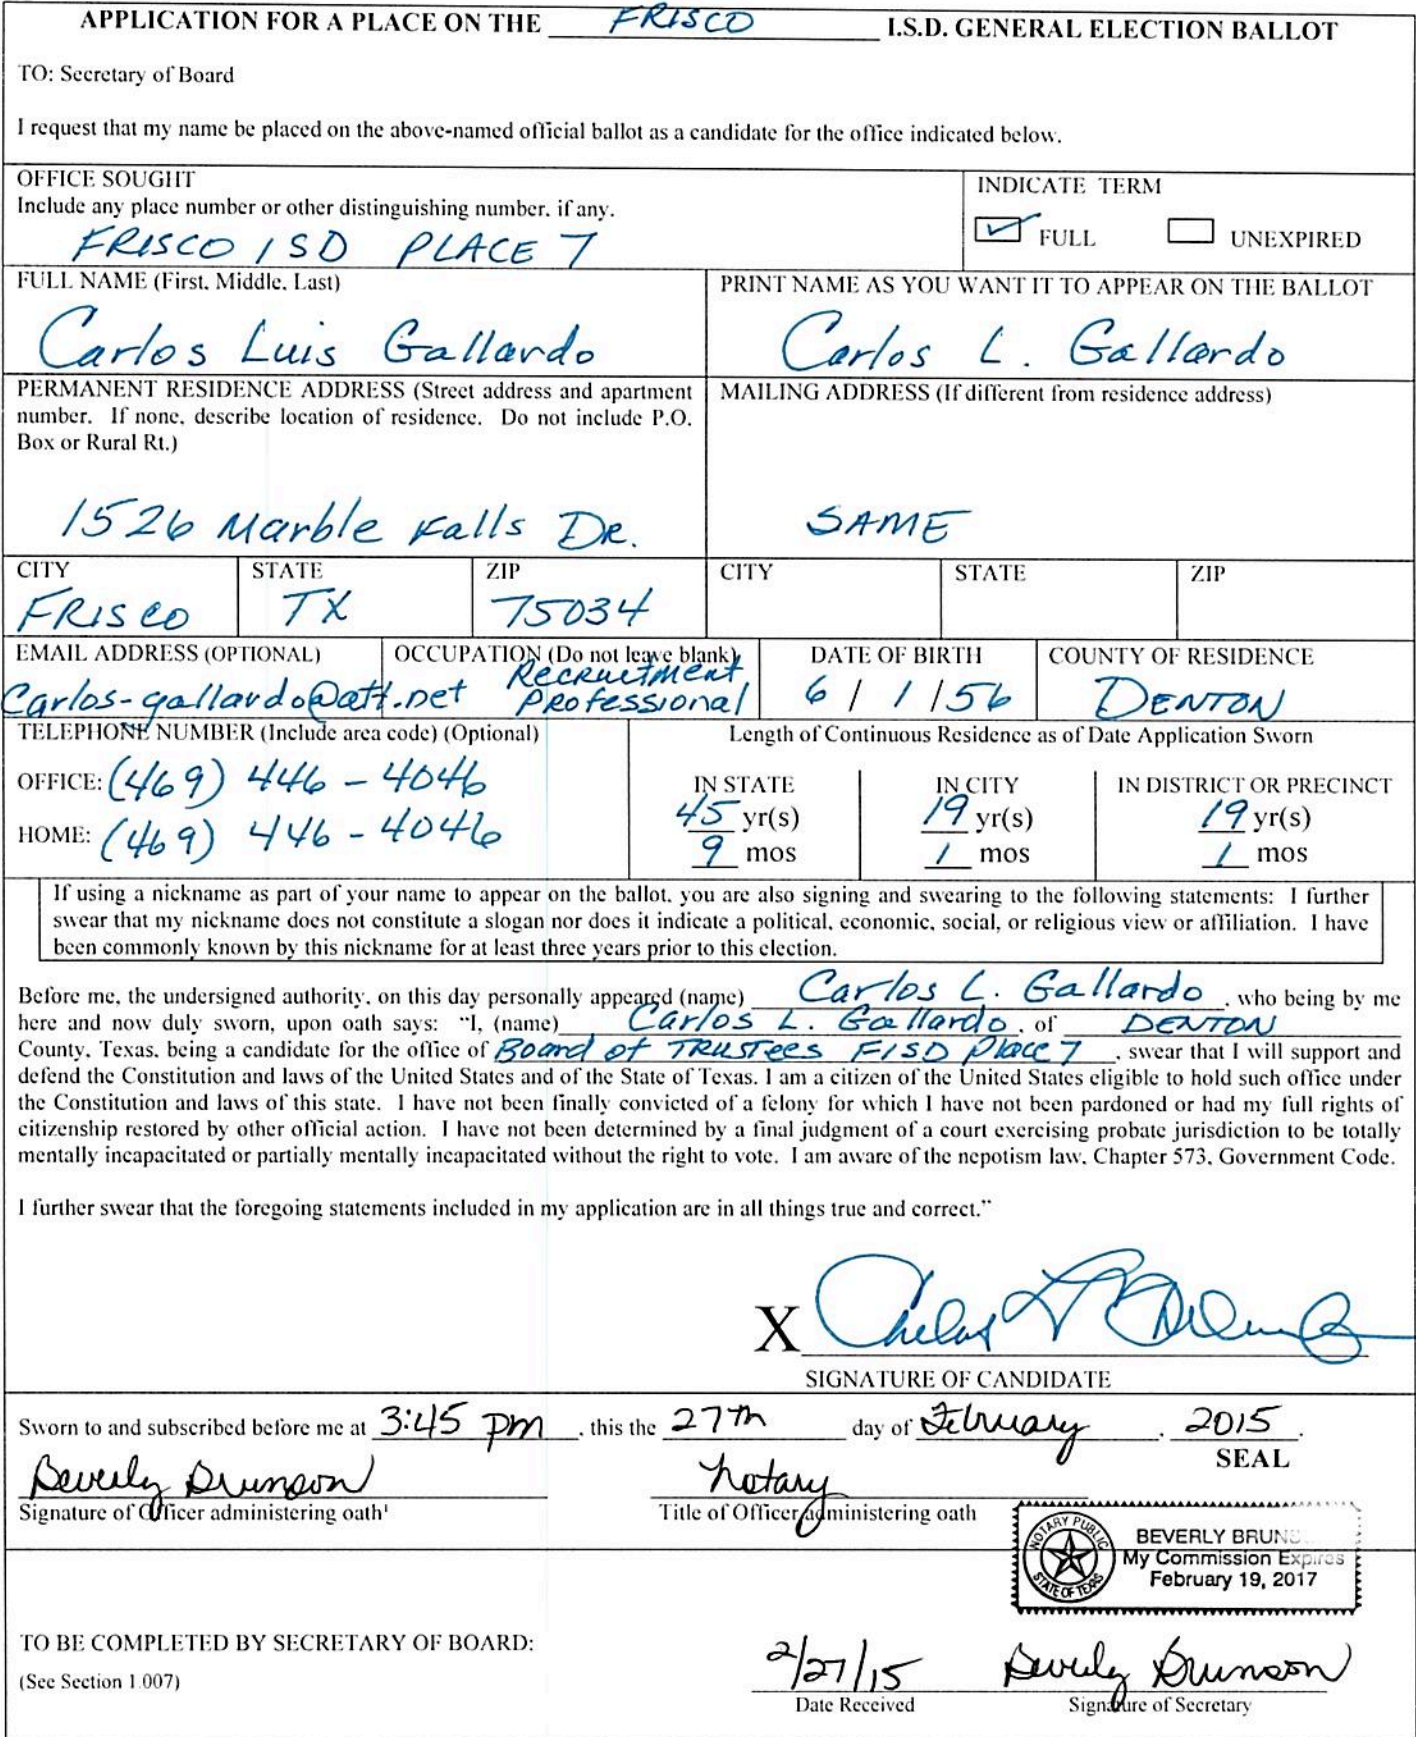 APPLICATION FOR A PLACE ON THE FRISCO I.S.D. GENERAL ELECTION BALLOT
TO: Secretary of Board
I request that my name be placed on the above-named official ballot as a candidate for the office indicated below.
OFFICE SOUGHT
Include any place number or other distinguishing number, if any.
FRISCO ISD PLACE 7
INDICATE TERM
FULL UNEXPIRED
FULL NAME (First, Middle, Last)
Carlos Luis Gallardo
PRINT NAME AS YOU WANT IT TO APPEAR ON THE BALLOT
Carlos L. Gallardo
PERMANENT RESIDENCE ADDRESS (Street address and apartment
number. If none, describe location of residence. Do not include P.O.
Box or Rural Rt.)
1526 Marble Falls DR.
MAILING ADDRESS (If different from residence address)
SAME
CITY STATE ZIP CITY STATE ZIP
FRISCO TX 75034
EMAIL ADDRESS (OPTIONAL)
Carlos-gallardo@att.net
OCCUPATION (Do not leave blank)
Recruitment
Professional
DATE OF BIRTH
6 / 1 / 56
COUNTY OF RESIDENCE
DENTON
TELEPHONE NUMBER (Include area code) (Optional)
OFFICE: (469) 446-4046
HOME: (469) 446-4046
Length of Continuous Residence as of Date Application Sworn
IN STATE
45 yr(s)
9 mos
IN CITY
19 yr(s)
1 mos
IN DISTRICT OR PRECINCT
19 yr(s)
1 mos
If using a nickname as part of your name to appear on the ballot, you are also signing and swearing to the following statements: I further
swear that my nickname does not constitute a slogan nor does it indicate a political, economic, social, or religious view or affiliation. I have
been commonly known by this nickname for at least three years prior to this election.
Before me, the undersigned authority, on this day personally appeared (name) Carlos L. Gallardo, who being by me
here and now duly sworn, upon oath says: "I, (name) Carlos L. Gallardo, of DENTON
County, Texas, being a candidate for the office of Board of TRUSTees FISD Place 7, swear that I will support and
defend the Constitution and laws of the United States and of the State of Texas. I am a citizen of the United States eligible to hold such office under
the Constitution and laws of this state. I have not been finally convicted of a felony for which I have not been pardoned or had my full rights of
citizenship restored by other official action. I have not been determined by a final judgment of a court exercising probate jurisdiction to be totally
mentally incapacitated or partially mentally incapacitated without the right to vote. I am aware of the nepotism law, Chapter 573, Government Code.
I further swear that the foregoing statements included in my application are in all things true and correct."
X
SIGNATURE OF CANDIDATE
Sworn to and subscribed before me at 3:45 pm, this the 27th day of February, 2015.
SEAL
Beverly Brunson
Signature of Officer administering oath¹
Notary
Title of Officer administering oath
NOTARY PUBLIC
STATE OF TEXAS
BEVERLY
My Commission Expires
February 19, 2017
TO BE COMPLETED BY SECRETARY OF BOARD:
(See Section 1.007)
2/27/15
Date Received
Beverly Brunson
Signature of Secretary